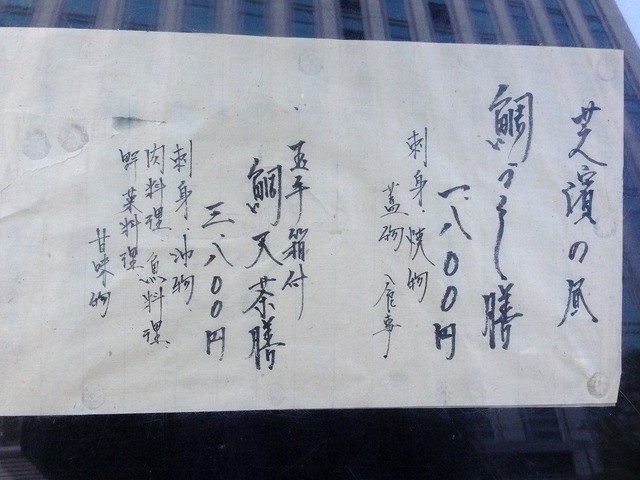 芝濱の昼
鯛 膳
一、八〇〇円
刺身・焼物
蓋物
玉手箱付
鯛天茶膳
三、八〇〇円
刺身・油物
肉料理 魚料理
野菜料理
甘味物